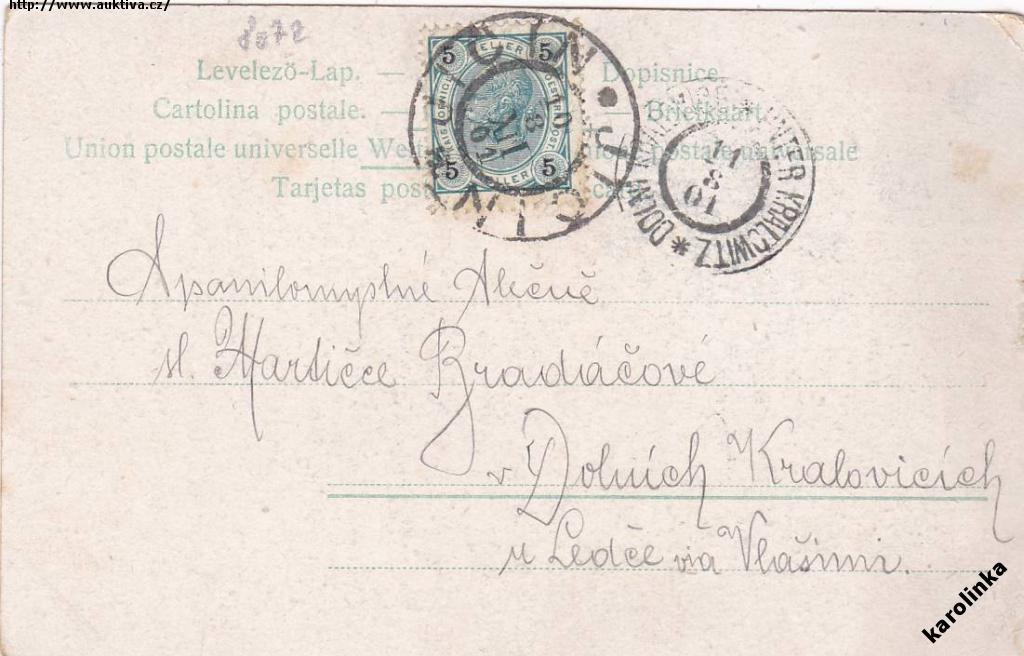 http://www.auktiva.cz/
Levelező-Lap. — Dopisnice.
Cartolina postale. — Briefkaart.
Union postale universelle postale universale
Tarjetas
5 HELLER 5
5 HELLER 5
JIČÍN * JITSCHIN
DOLNÍ KRALOVICE * UNTER KRALOWITZ *
11
8
01
Apanilomyslné Slečně
sl. Hartičce Bradáčové
v Dolních Kralovicích
u Ledče via Vlašimi.
karolinka